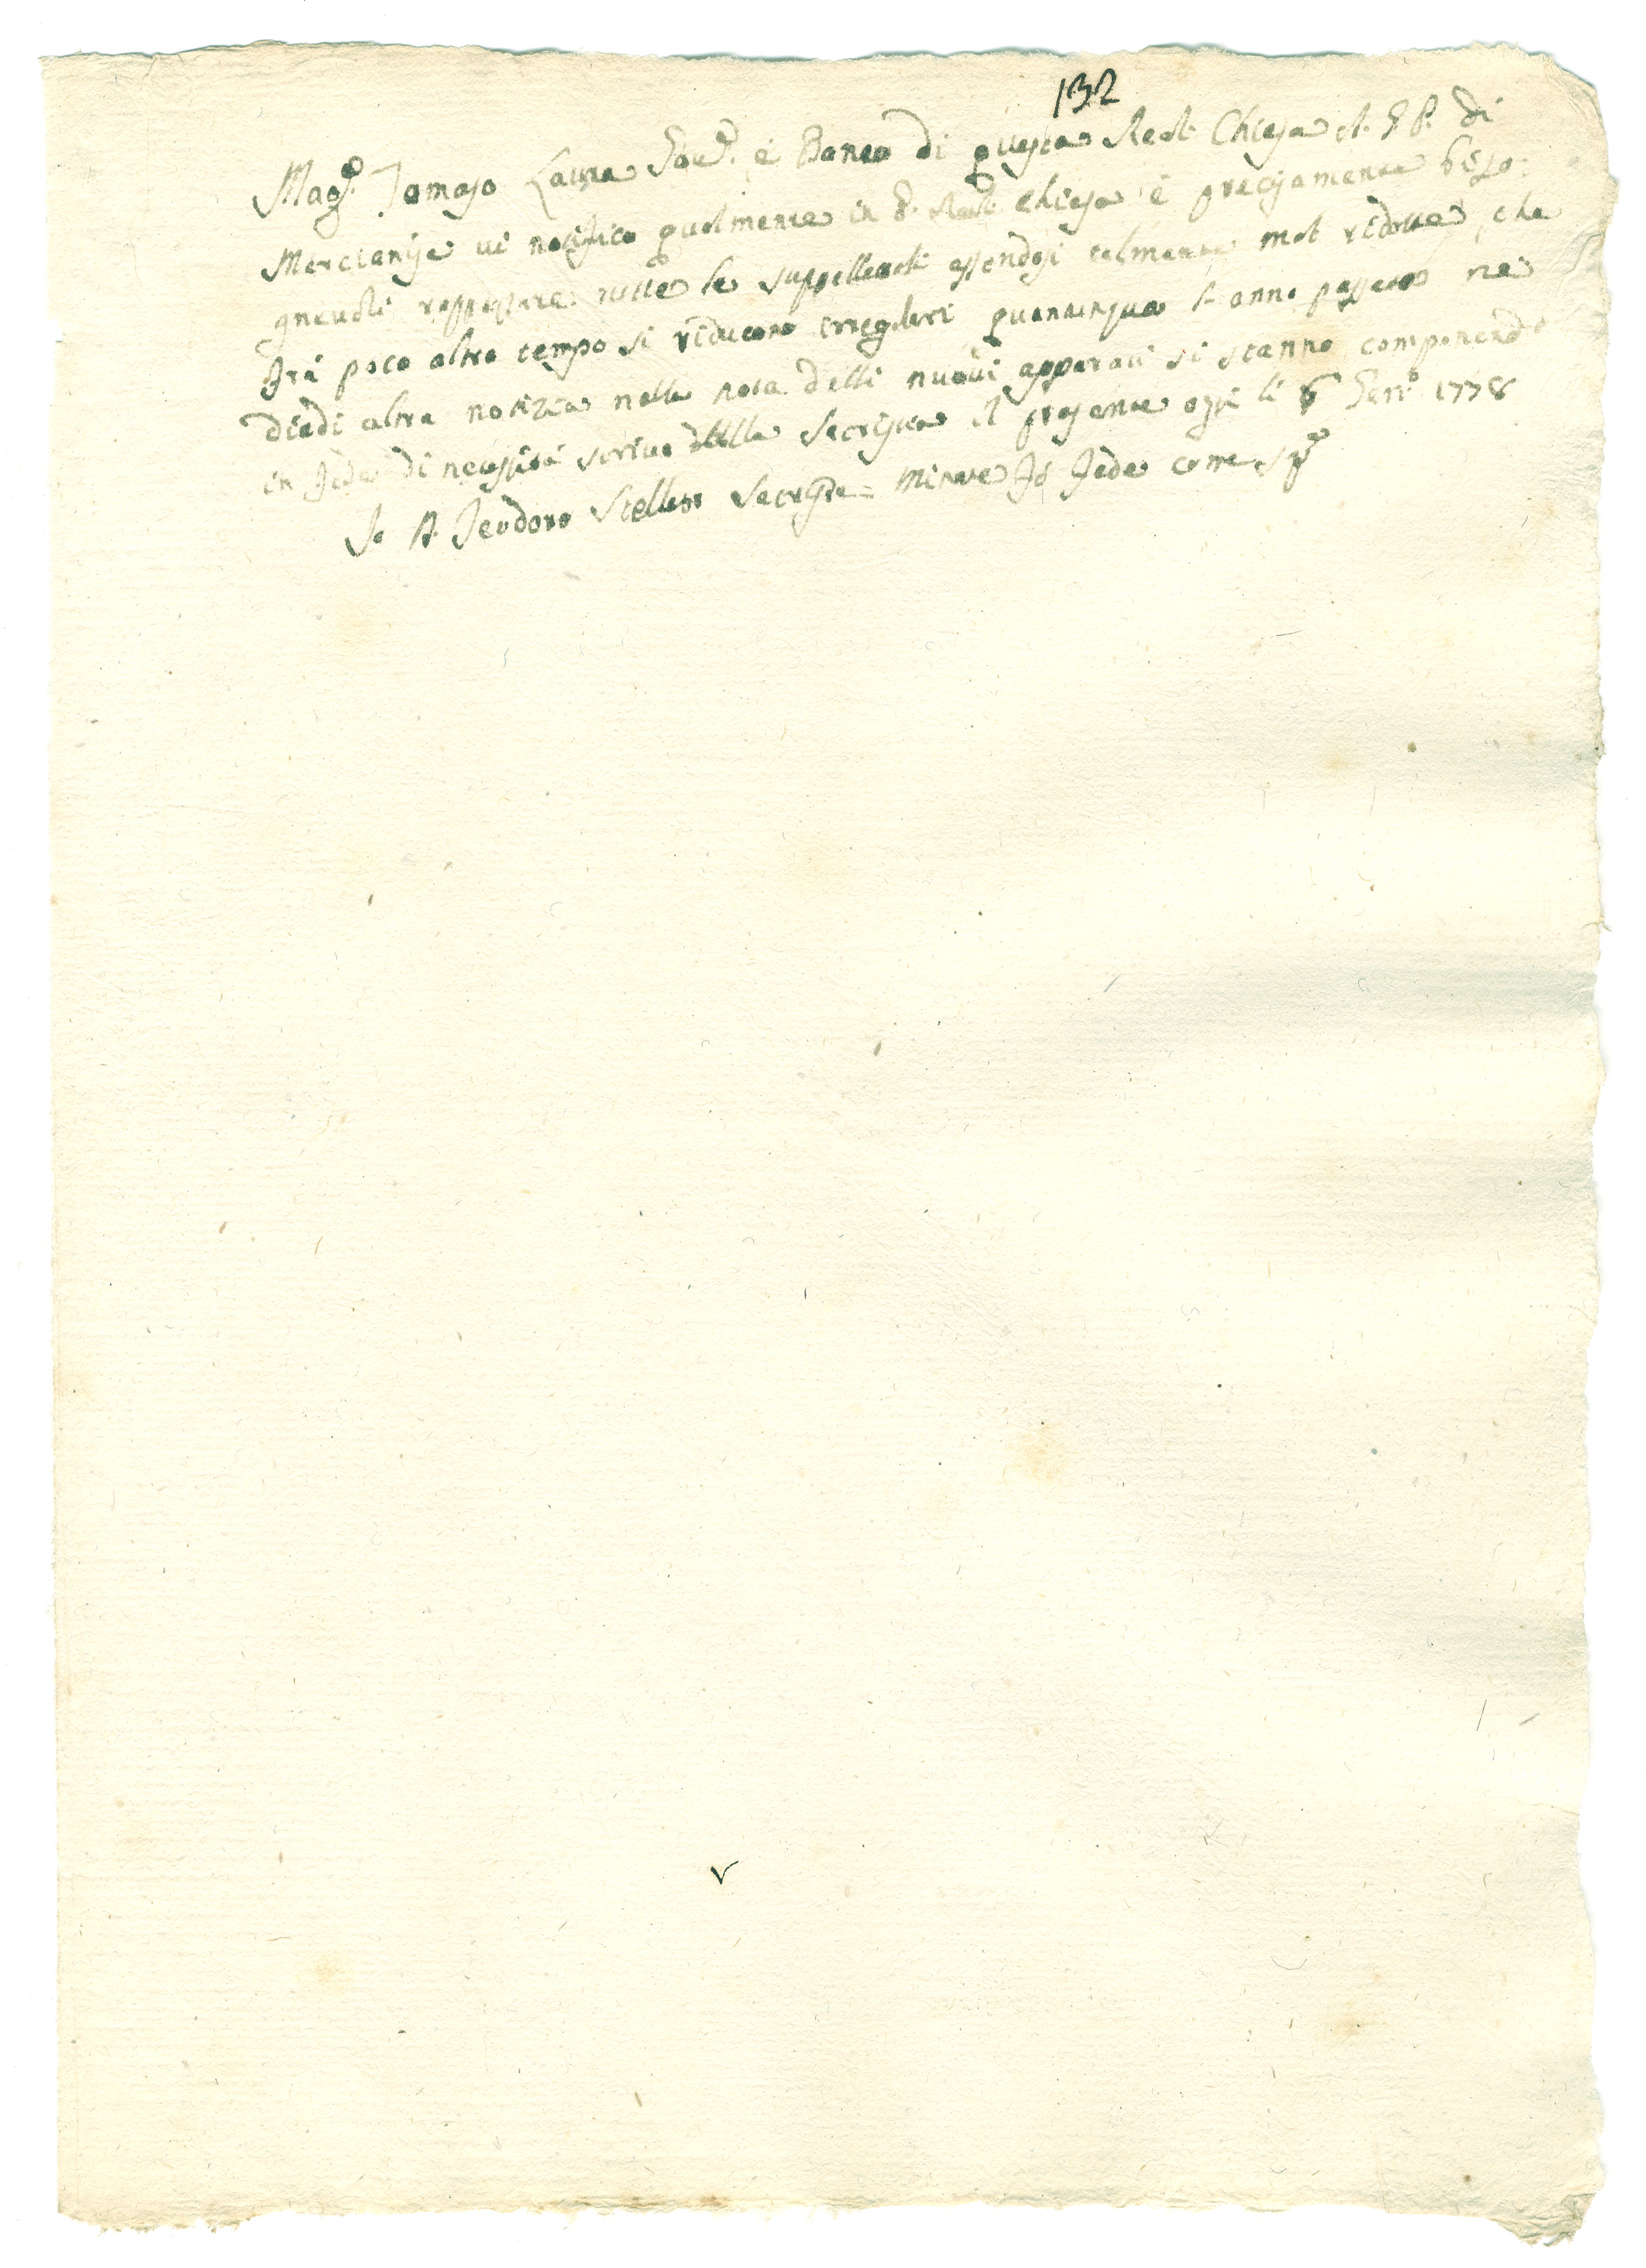 132
Mag.co Tomaso Laura Gov.e e Banca di questa Real Chiesa A. G. P. di
Marcianise vi notifico qualmente in d. Real Chiesa è precisamente biso:
gnevoli rappezzare tutte le suppellettili essendosi talmente mal ridotte, che
frà poco altro tempo si riducono irregolari quantunque l'anno passato ne
diedi altra notizia nella nota delli nuovi apparati si stanno componendo
in fede di necessità scrivo della Sacristia il presente oggi li 6 Genn.o 1778
Io D. Teodoro Stellato Sacrista fò fede come sp.a